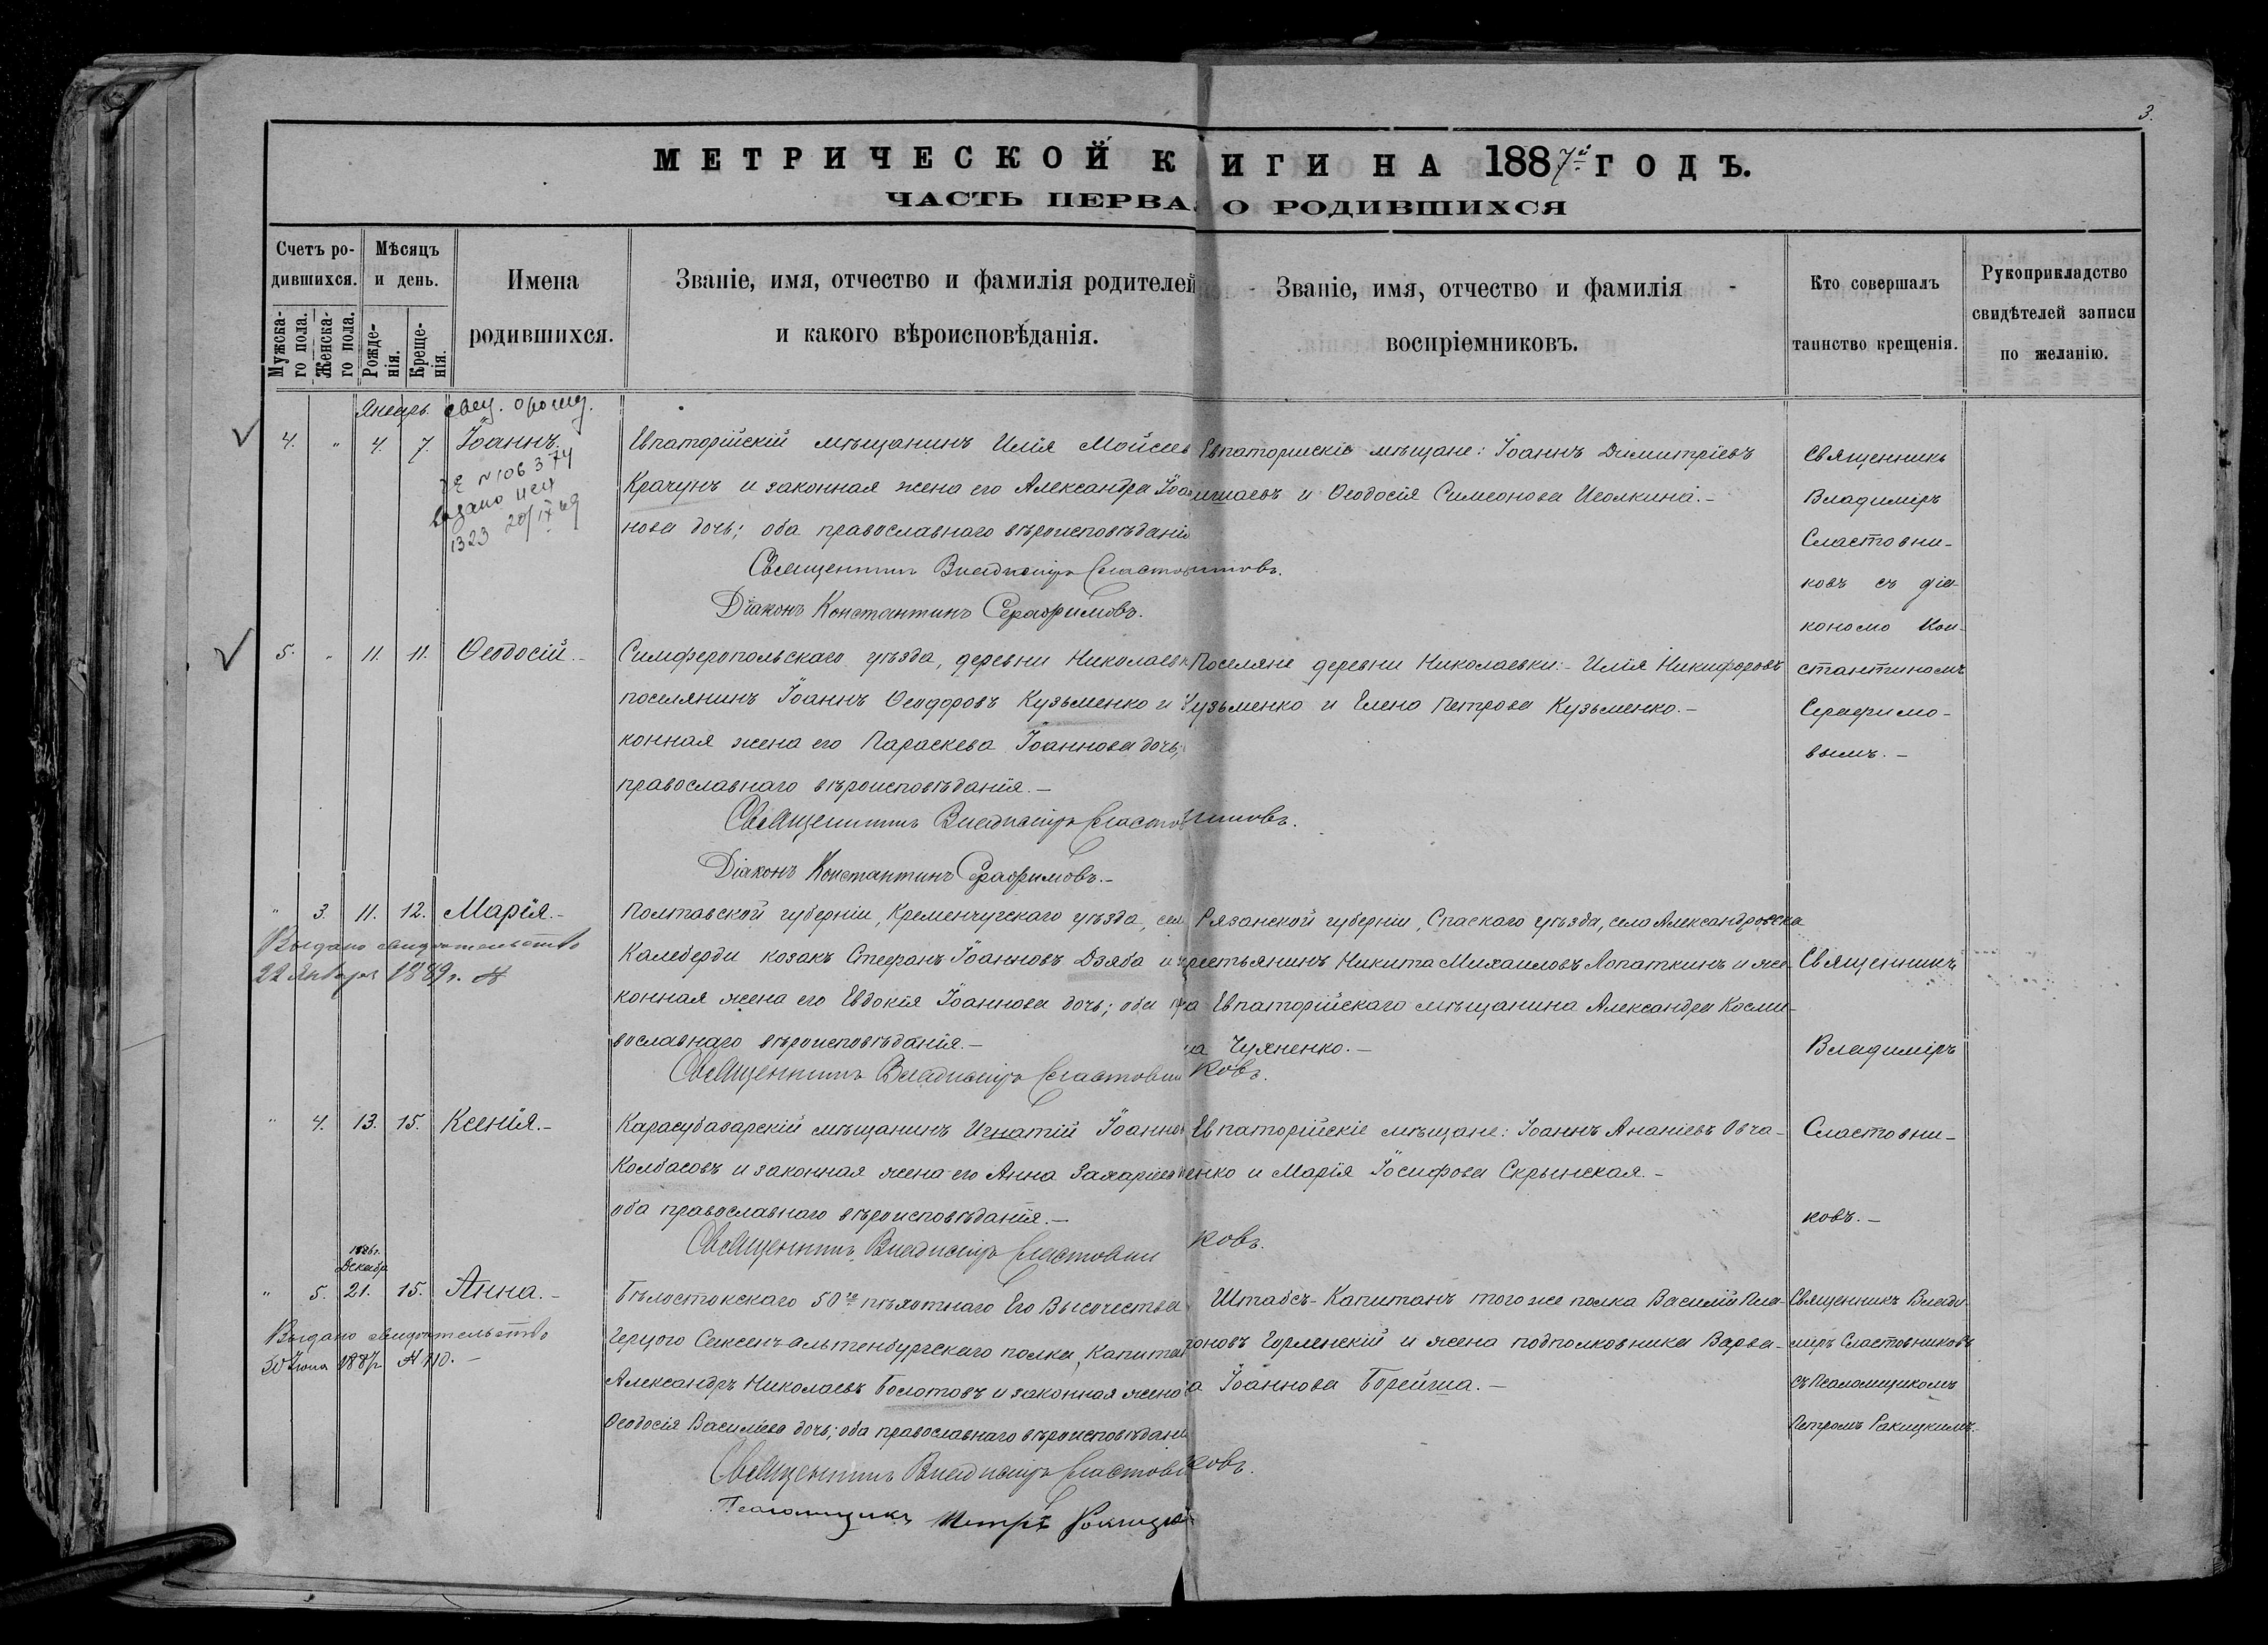 3.
МЕТРИЧЕСКОЙ КНИГИ НА 1887й ГОДЪ.
ЧАСТЬ ПЕРВА О РОДИВШИХСЯ
Счетъ ро-
дившихся.
Мужска-
го пола.
Женска-
го пола.
Мѣсяцъ
и день.
Рожде-
нія.
Креще-
нія.
Имена
родившихся.
Званіе, имя, отчество и фамилія родителей
и какого вѣроисповѣданія.
Званіе, имя, отчество и фамилія
воспріемниковъ.
Кто совершалъ
таинство крещенія.
Рукоприкладство
свидѣтелей записи
по желанію.
Январь.
4. " 4. 7. Іоаннъ.
N 106374
1323 20/IX 49
Евпаторійскій мѣщанинъ Илія Мойсеев
Крачунъ и законная жена его Александра Іоан
нова дочь; оба православнаго вѣроисповѣдані
Священникъ Владиміръ Сластовниковъ.
Діаконъ Константинъ Серафимовъ.
Евпаторійскіе мѣщане: Іоаннъ Димитріевъ
и Ѳеодосія Симеонова
Священникъ
Владиміръ
Сластовни-
ковъ съ діа-
кономъ Кон-
стантиномъ
Серафимо-
вымъ.-
5. " 11. 11. Ѳеодосій.-
Симферопольскаго уѣзда, деревни Николаевк
поселянинъ Іоаннъ Ѳеодоровъ Кузьменко и
конная жена его Параскева Іоаннова дочь;
православнаго вѣроисповѣданія.-
Священникъ Владиміръ Сластовниковъ.
Діаконъ Константинъ Серафимовъ.-
Поселяне деревни Николаевки:- Илія Никифоровъ
Кузьменко и Елена Петрова Кузьменко.-
" 3. 11. 12. Марія.-
Выдано свидѣтельство
22 Января 1889 г. №
Полтавской губерніи, Кременчугскаго уѣзда, сел
Камберди козакъ Стефанъ Іоанновъ Дзяба и
конная жена его Евдокія Іоаннова дочь; оба пра
вославнаго вѣроисповѣданія.-
Священникъ Владиміръ Сластовниковъ.
Рязанской губерніи, Спаскаго уѣзда, села Александровска
крестьянинъ Никита Михаиловъ Лопаткинъ и же-
на Евпаторійскаго мѣщанина Александра Косми-
на Чуяненко.-
Священникъ
Владиміръ
Сластовни-
ковъ.-
" 4. 13. 15. Ксенія.-
Карасубазарскій мѣщанинъ Игнатій Іоаннов
Колбасовъ и законная жена его Анна Захаріева
оба православнаго вѣроисповѣданія.-
Священникъ Владиміръ Сластовниковъ.
Евпаторійскіе мѣщане: Іоаннъ Ананіевъ Овча-
енко и Марія Іосифова Скрынская.-
1886 г.
Декабр
" 5. 21. 15. Анна.-
Выдано свидѣтельство
30 Іюня 1887 г. № 110.-
Бѣлостокскаго 50го пѣхотнаго Его Высочества
Герцога Саксенъ-Альтенбургскаго полка, Капитан
Александръ Николаевъ Болотовъ и законная жена
Ѳеодосія Васильева дочь; оба православнаго вѣроисповѣдані
Священникъ Владиміръ Сластовниковъ.
Псаломщикъ Петръ Ракицкій
Штабсъ-Капитанъ того же полка Василій Пла-
тоновъ Горленскій и жена подполковника Варва-
ра Іоаннова Борейша.-
Священникъ Влади-
міръ Сластовниковъ
съ Псаломщикомъ
Петромъ Ракицкимъ.